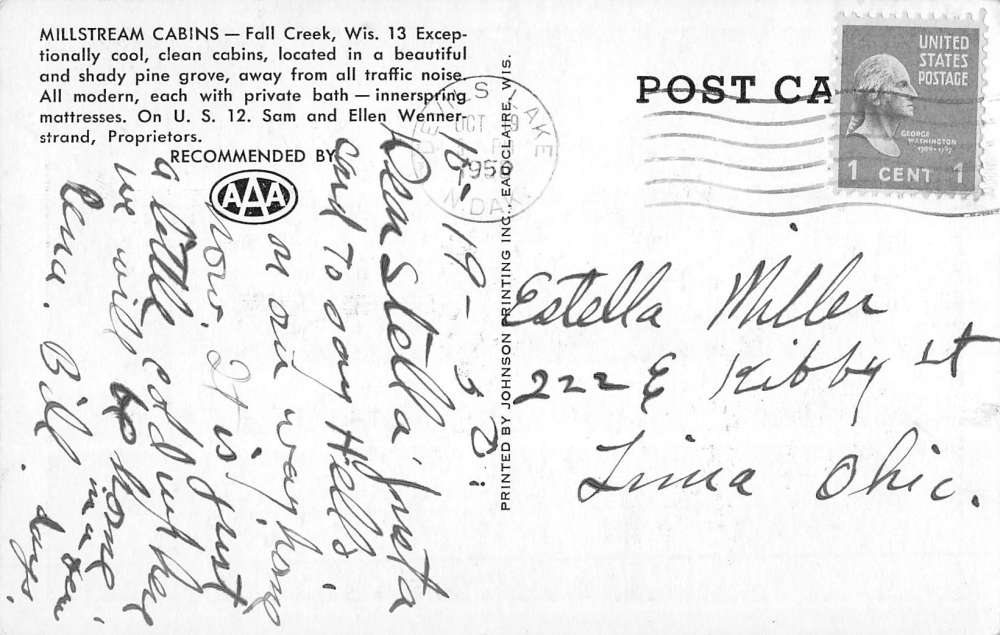 MILLSTREAM CABINS — Fall Creek, Wis. 13 Excep-
tionally cool, clean cabins, located in a beautiful
and shady pine grove, away from all traffic noise.
All modern, each with private bath — innerspring
mattresses. On U. S. 12. Sam and Ellen Wenner-
strand, Proprietors.
RECOMMENDED BY
AAA
10-19-50
Dear Stella Just a
card to say Hello
on our way home
now. It is Just
a little cold up here
we will be home in a few days.
Lena. Bill.
PRINTED BY JOHNSON PRINTING INC., EAU CLAIRE, WIS.
POST CA
DEVILS LAKE
OCT
195
N.DAK.
UNITED
STATES
POSTAGE
GEORGE
WASHINGTON
1789-1797
1 CENT 1
Estella Miller
222 E Kibby St
Lima Ohio.